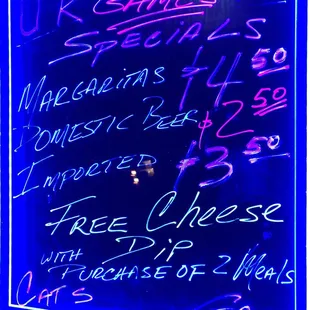 UK GAMES
SPECIALS
MARGARITAS $4.50
DOMESTIC BEER $2.50
IMPORTED $3.50
FREE Cheese
DiP
WITH PURCHASE OF 2 Meals
CATS